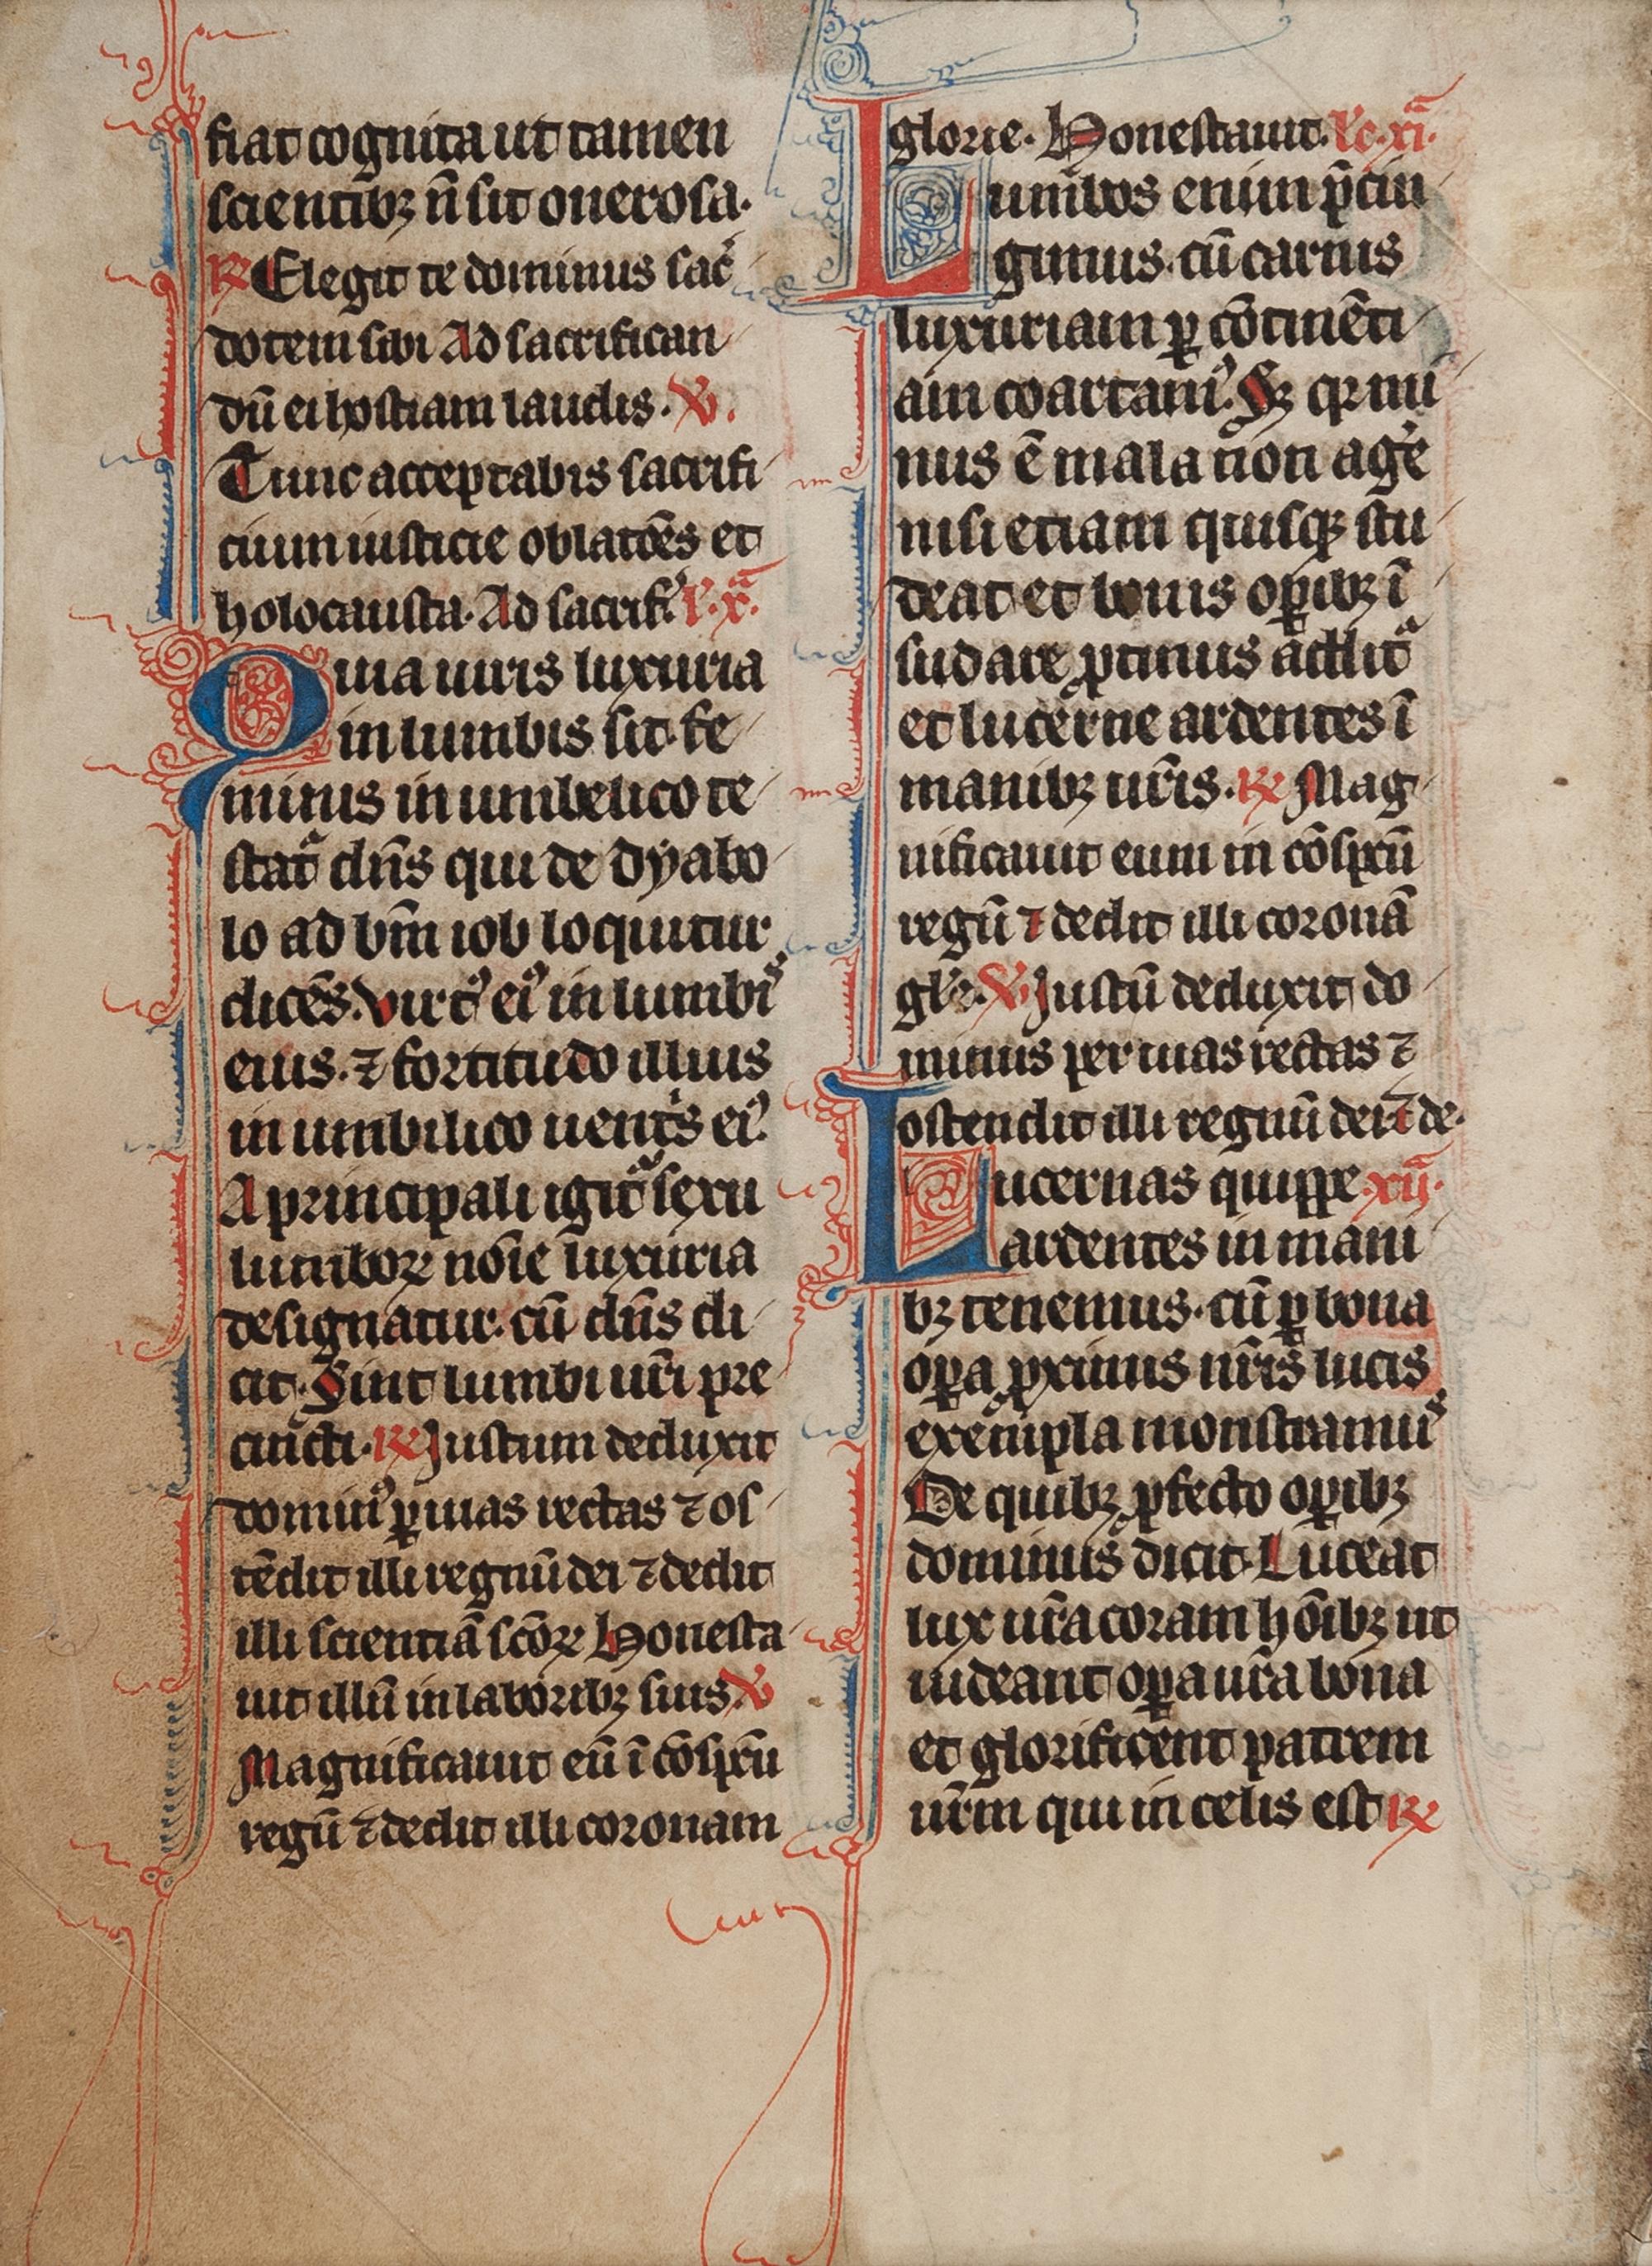 fiat cognita ut tamen
scientibꝫ n̄ sit onerosa.
℟ Elegit te dominus sac̄
dotem sibi Ad sacrifican
dū ei hostiam laudis. ℣.
Tunc acceptabis sacrifi
cium iusticie oblatōes et
holocausta. Ad sacrif. l'. x̄.
Quia uiris luxuria
in lumbis sit fe
minis in umbelico te
statᷓ dn̄s qui de dyabo
lo ad bm̄ iob loquitur
dicēs. virtꝰ eiꝰ in lumbiˢ
eius. ⁊ fortitudo illius
in umbilico uent̾s eiꝰ.
A principali igitᷓ sexu
lumboꝝ nōie luxuria
designatur. cū dn̄s di
cit. Sint lumbi ur̄i pre
cincti. ℟ Justum deduxit
dominꝰ ꝑ uias rectas ⁊ os
tēdit illi regnū dei ⁊ dedit
illi scientiā scōꝝ Honesta
uit illū in laboribꝫ suis ℣
Magnificauit eū ī cōspc̄u
regū ⁊ dedit illi coronam
glorie. Honestauit. lc̄. xi̾.
Lumbos enim p̄cin
gimus. cū carnis
luxuriam ꝑ cōtinēti
am coartamꝰ. Sꝫ qꝛ mi
nus ē mala non ag̾e
nisi etiam quisqꝫ stu
deat et bonis oꝑibꝫ ī
sudare, ꝓtinus addit̾
et lucerne ardentes ī
manibꝫ ur̄is. ℟ Mag
nificauit eum in cōspc̄ū
regū ⁊ dedit illi coronā
gl̄e. ℣ Justū deduxit do
minus per uias rectas ⁊
ostendit illi regnū dei ⁊ de.
Lucernas quippe. xij̄.
ardentes in mani
bꝫ tenemus. cū ꝑ bona
oꝑa ꝓximis nr̄is lucis
exempla monstramuˢ
De quibꝫ ꝓfecto oꝑibꝫ
dominus dicit. Luceat
lux ur̄a coram hōibꝫ ut
uideant oꝑa ur̄a bona
et glorificent patrem
ur̄m qui in celis est ℟